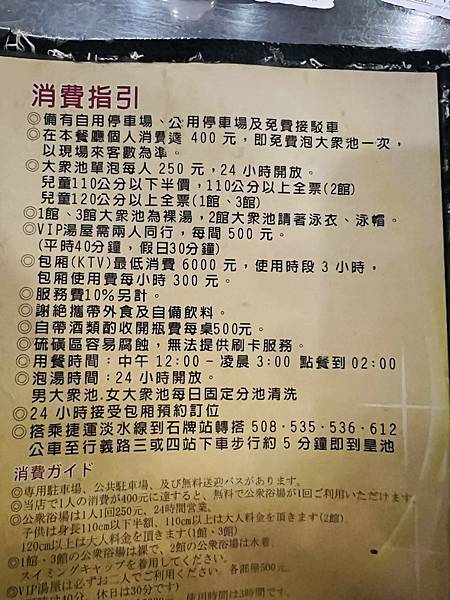 消費指引
◎備有自用停車場、公用停車場及免費接駁車
◎在本餐廳個人消費達 400 元，即免費泡大眾池一次，
以現場來客數為準。
◎大眾池單泡每人 250 元，24 小時開放。
兒童110公分以下半價，110公分以上全票(2館)
兒童120公分以上全票(1館、3館)
◎1館、3館大眾池為裸湯，2館大眾池請著泳衣、泳帽。
◎VIP湯屋需兩人同行，每間 500 元。
(平時40分鐘，假日30分鐘)
◎包廂(KTV)最低消費 6000 元，使用時段 3 小時，
包廂使用費每小時 300 元。
◎服務費10%另計。
◎謝絶攜帶外食及自備飲料。
◎自帶酒類酌收開瓶費每桌500元。
◎硫磺區容易腐蝕，無法提供刷卡服務。
◎用餐時間：中午 12:00－凌晨 3:00 點餐到 02:00
◎泡湯時間：24 小時開放。
男大眾池.女大眾池每日固定分池清洗
◎24 小時接受包廂預約訂位
◎搭乘捷運淡水線到石牌站轉搭 508·535·536·612
公車至行義路三或四站下車步行約 5 分鐘即到皇池
消費ガイド
◎専用駐車場、公共駐車場、及び無料送迎バスがあります。
◎当店で1人の消費が400元に達すると、無料で公衆浴場が1回ご利用いただけます
◎公衆浴場は1人1回250元、24時間営業。
子供は身長110cm以下半額、110cm以上は大人料金を頂きます(2館)
120cm以上は大人料金を頂きます(1館・3館)
◎1館・3館の公衆浴場は裸で、2館の公衆浴場は水着、
スイミングキャップを着用してください。
◎VIP湯屋は必ずお二人でご利用ください、各部屋500元、
休日は30分です)
使用時間は3時間です。